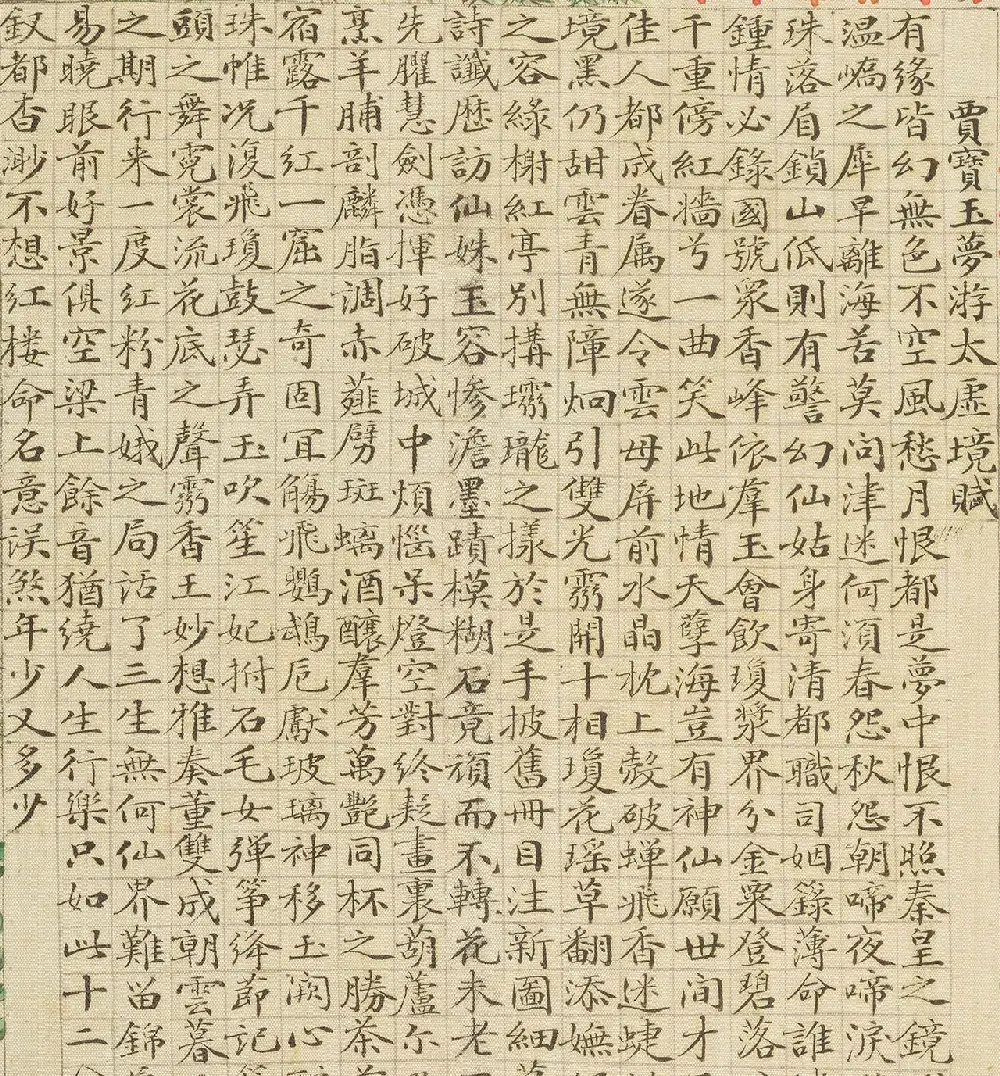 賈寶玉夢游太虛境賦
有緣皆幻無色不空風愁月恨都是夢中恨不照秦皇之鏡
温嶠之犀早離海苦莫问津迷何湏春怨秋怨朝啼夜啼淚
珠落眉鎖山低則有警幻仙姑身寄清都職司姻籙薄命誰
鍾情必錄國號眾香峰依羣玉會飲瓊漿界分金粟登碧落
千重傍紅牆兮一曲笑此地情天孽海豈有神仙願世间才
佳人都成眷属遂令雲母屏前水晶枕上殼破蝉飛香迷蜨
境黑仍甜雲青無障炯引雙光霛開十相瓊花瑶草翻添嫵
之容綠榭紅亭别搆瓏之樣於是手披舊冊目注新圖細
詩讖歷訪仙姝玉容慘澹墨蹟模糊石竟頑而不轉花未老
先臞慧劍憑揮好破城中煩惱呆燈空對終疑畫裏葫蘆尓
烹羊脯剖麟脂調赤薤劈斑螭酒釀羣芳萬艷同杯之勝茶
宿露千红一窟之奇固冝觴飛鸚鵡卮獻玻璃神移玉阙心
珠帷况復飛瓊鼓瑟弄玉吹笙江妃拊石毛女弹筝绛節記
頭之舞霓裳流花底之聲霛香王妙想雅奏董雙成朝雲暮
之期行来一度红粉青娥之局话了三生無何仙界難留錦
易曉眼前好景俱空梁上餘音猶繞人生行樂只如此十二
釵都杳渺不想红楼命名意误煞年少又多少